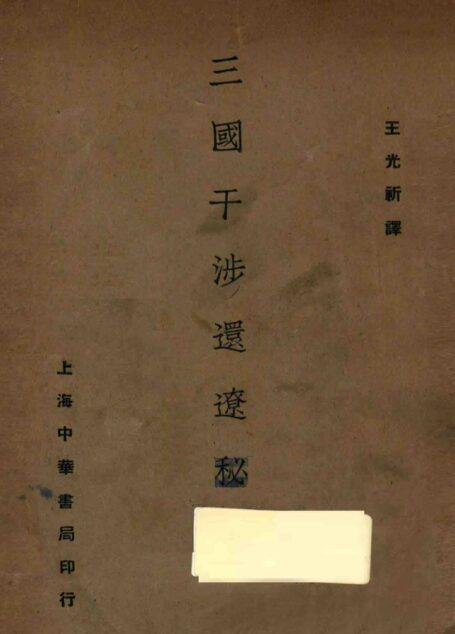 王光祈譯
三國干涉還遼秘
上海中華書局印行